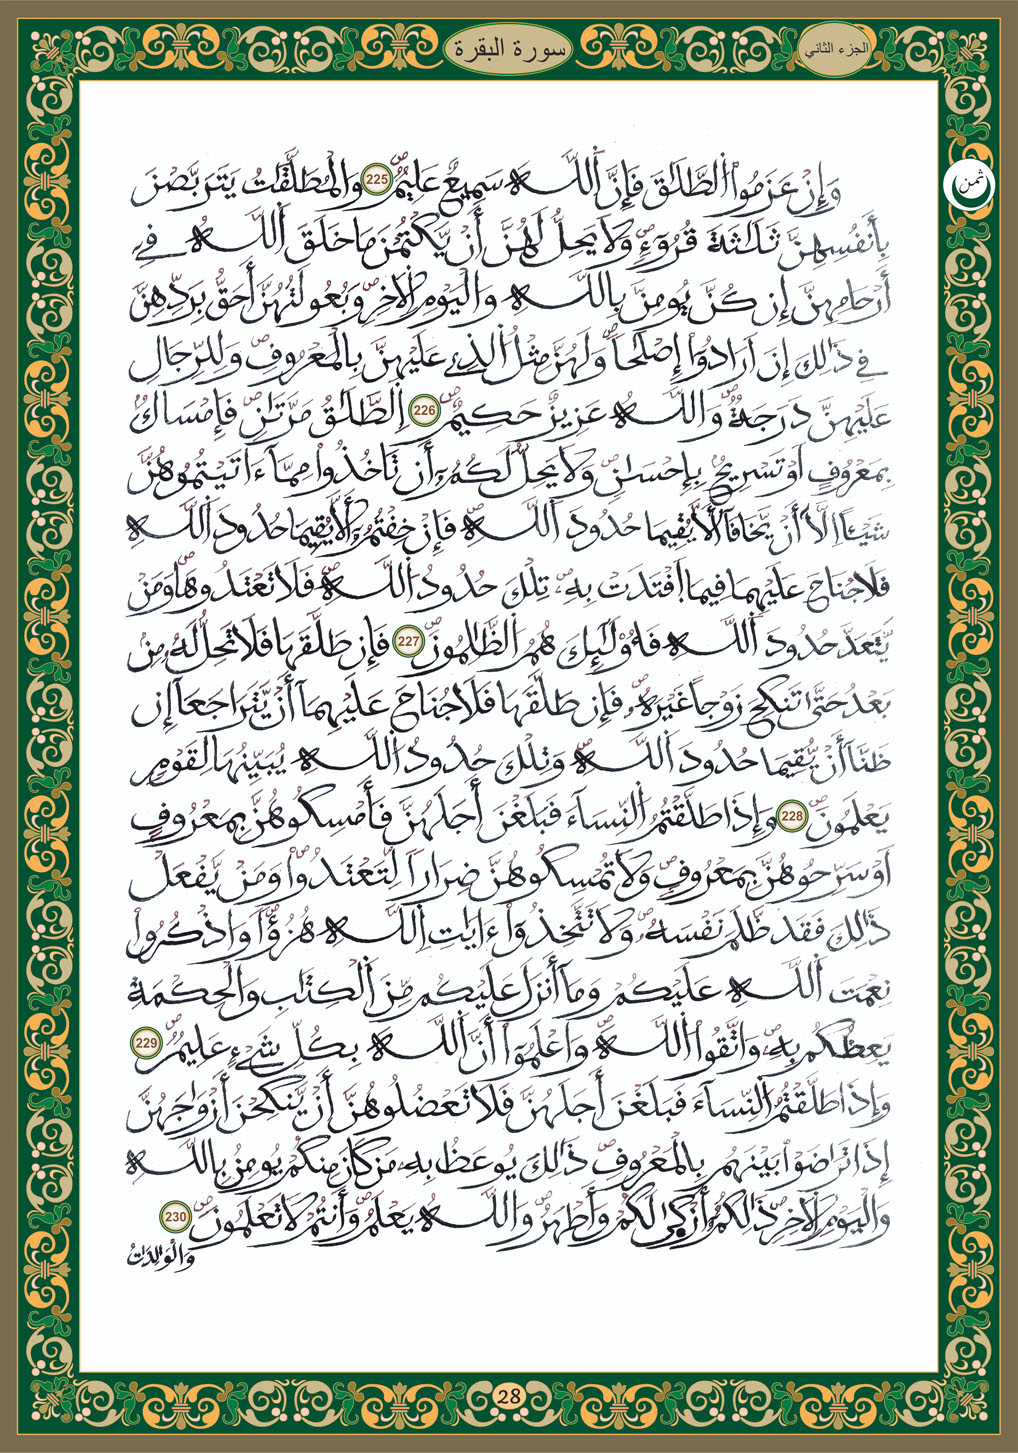 الجزء الثاني
سورة البقرة
ثمن
وَإِنْ عَزَمُواْ اُلطَّلَٰقَ فَإِنَّ اَللَّهَ سَمِيعٌ عَلِيمٞۖ 225 وَالْمُطَلَّقَٰتُ يَتَرَبَّصْنَ
بِأَنفُسِهِنَّ ثَلَٰثَةَ قُرُوٓءٖۖ وَلَا يَحِلُّ لَهُنَّ أَنْ يَّكْتُمْنَ مَا خَلَقَ اَللَّهُ فِے
أَرْحَامِهِنَّ إِن كُنَّ يُومِنَّ بِاللَّهِ وَالْيَوْمِ اِلَاخِرِۖ وَبُعُولَتُهُنَّ أَحَقُّ بِرَدِّهِنَّ
فِے ذَٰلِكَ إِنَ اَرَادُوٓاْ إِصْلَٰحاٗۖ وَلَهُنَّ مِثْلُ اُلذِے عَلَيْهِنَّ بِالْمَعْرُوفِۖ وَلِلرِّجَالِ
عَلَيْهِنَّ دَرَجَةٞۖ وَاللَّهُ عَزِيزٌ حَكِيمٌۖ 226 اِلطَّلَٰقُ مَرَّتَٰنِۖ فَإِمْسَاكُۢ
بِمَعْرُوفٍ اَوْ تَسْرِيحُۢ بِإِحْسَٰنٖۖ وَلَا يَحِلُّ لَكُمُۥٓ أَن تَاخُذُواْ مِمَّآ ءَاتَيْتُمُوهُنَّ
شَيْـٔاً اِلَّآ أَنْ يَّخَافَآ أَلَّا يُقِيمَا حُدُودَ اَللَّهِۖ فَإِنْ خِفْتُمُۥٓ أَلَّا يُقِيمَا حُدُودَ اَللَّهِ
فَلَا جُنَاحَ عَلَيْهِمَا فِيمَا اَفْتَدَتْ بِهِۦۖ تِلْكَ حُدُودُ اُللَّهِ فَلَا تَعْتَدُوهَاۖ وَمَنْ
يَّتَعَدَّ حُدُودَ اَللَّهِ فَأُوْلَٰٓئِكَ هُمُ اُلظَّٰلِمُونَۖ 227 فَإِن طَلَّقَهَا فَلَا تَحِلُّ لَهُۥ مِنۢ
بَعْدُ حَتَّىٰ تَنكِحَ زَوْجاً غَيْرَهُۥۖ فَإِن طَلَّقَهَا فَلَا جُنَاحَ عَلَيْهِمَآ أَنْ يَّتَرَاجَعَآ إِن
ظَنَّآ أَنْ يُّقِيمَا حُدُودَ اَللَّهِۖ وَتِلْكَ حُدُودُ اُللَّهِ يُبَيِّنُهَا لِقَوْمٖ
يَعْلَمُونَۖ 228 وَإِذَا طَلَّقْتُمُ اُلنِّسَآءَ فَبَلَغْنَ أَجَلَهُنَّ فَأَمْسِكُوهُنَّ بِمَعْرُوفٍ
اَوْ سَرِّحُوهُنَّ بِمَعْرُوفٖ وَلَا تُمْسِكُوهُنَّ ضِرَاراٗ لِّتَعْتَدُواْۖ وَمَنْ يَّفْعَلْ
ذَٰلِكَ فَقَد ظَّلَمَ نَفْسَهُۥۖ وَلَا تَتَّخِذُوٓاْ ءَايَٰتِ اِللَّهِ هُزُؤاٗۖ وَاذْكُرُواْ
نِعْمَتَ اَللَّهِ عَلَيْكُمْ وَمَآ أَنزَلَ عَلَيْكُم مِّنَ اَلْكِتَٰبِ وَالْحِكْمَةِ
يَعِظُكُم بِهِۦۖ وَاتَّقُواْ اُللَّهَۖ وَاعْلَمُوٓاْ أَنَّ اَللَّهَ بِكُلِّ شَےْءٍ عَلِيمٞۖ 229
وَإِذَا طَلَّقْتُمُ اُلنِّسَآءَ فَبَلَغْنَ أَجَلَهُنَّ فَلَا تَعْضُلُوهُنَّ أَنْ يَّنكِحْنَ أَزْوَٰجَهُنَّ
إِذَا تَرَٰضَوْاْ بَيْنَهُم بِالْمَعْرُوفِۖ ذَٰلِكَ يُوعَظُ بِهِۦ مَن كَانَ مِنكُمْ يُومِنُ بِاللَّهِ
وَالْيَوْمِ اِلَاخِرِۖ ذَٰلِكُمُۥٓ أَزْكَىٰ لَكُمْ وَأَطْهَرُۖ وَاللَّهُ يَعْلَمُ وَأَنتُمْ لَا تَعْلَمُونَۖ 230
وَالْوَٰلِدَٰتُ
28